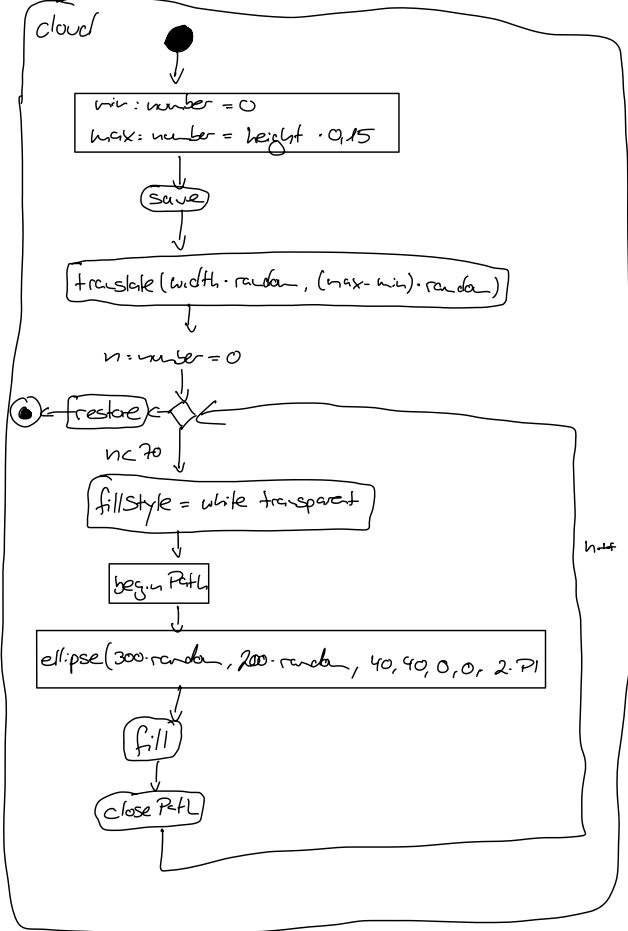 cloud
min: number = 0
max: number = height · 0,15
save
translate(width·random, (max-min)·random)
n: number = 0
restore
n<70
fillStyle = white transparent
n++
begin Path
ellipse(300·random, 200·random, 40,40,0,0, 2·PI
fill
close Path